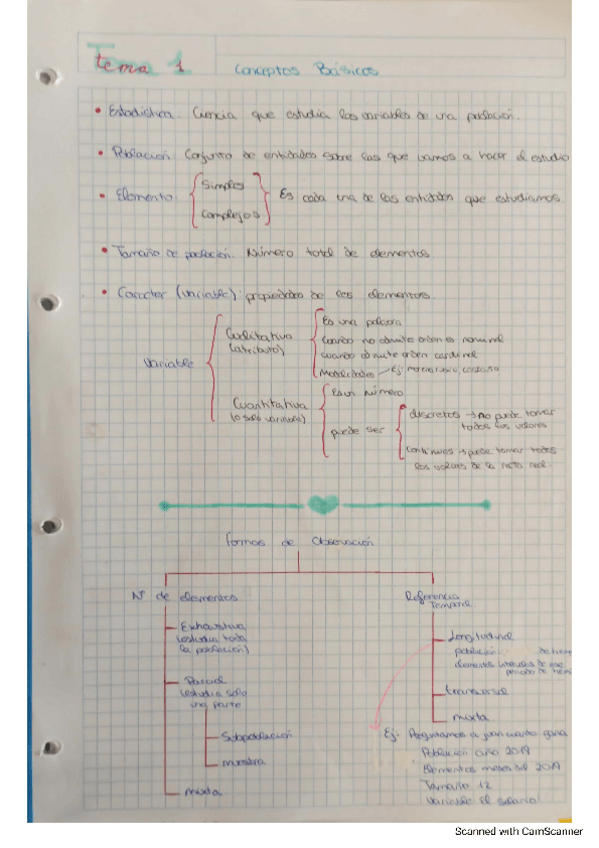 Tema 1 Conceptos Básicos
• Estadística. Ciencia que estudia las variables de una población.
• Población. Conjunto de entidades sobre las que vamos a hacer el estudio
• Elemento. Simples Complejos Es cada una de las entidades que estudiamos.
• Tamaño de población. Número total de elementos.
• Caracter (variable): propiedades de los elementos.
Variable
Cualitativa
(atributo)
Es una palabra
cuando no admite orden es nominal
cuando admite orden cardinal
Modalidades Ej:
Cuantitativa
(o solo variable)
Es un número
puede ser
discretos → no puede tomar
todos los valores
continuos → puede tomar todos
los valores de la recta real.
Formas de Observación
Nº de elementos
Exhaustiva
(estudia toda
la población)
Parcial
(estudia solo
una parte
Subpoblación
muestra
mixta
Referencia
Temporal
Longitudinal
población: de
elementos intervalos de ese
periodo de
transversal
mixta
Ej. Preguntamos a juan cuanto gana
Población año 2019
Elementos meses del 2019
Tamaño 12
Variable el salario
Scanned with CamScanner